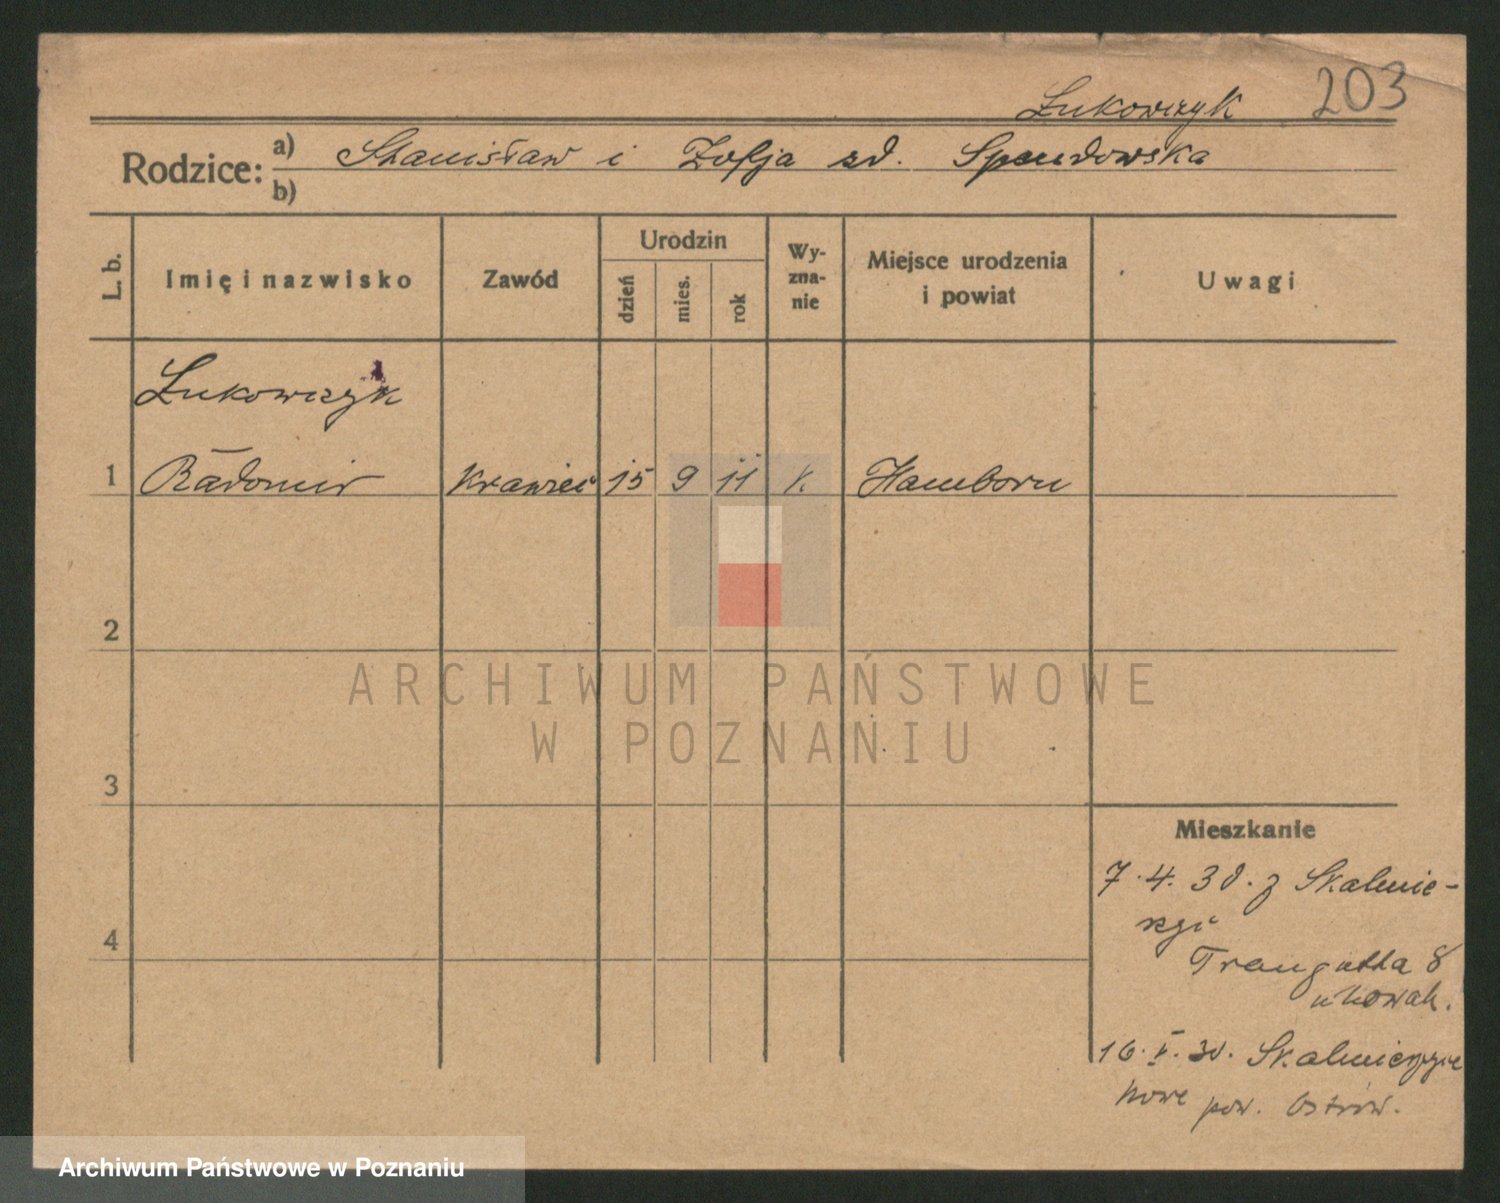 203
Łukowczyk
Rodzice: a) Stanisław i Zofja zd. Spendowska
b)
L. b. Imię i nazwisko Zawód Urodzin dzień mies. rok Wy-zna-nie Miejsce urodzenia i powiat Uwagi
Łukowczyk
1 Radomir Krawiec 15 9 11 k. Hamborn
2
ARCHIWUM PAŃSTWOWE
W POZNANIU
3
Mieszkanie
7.4.30. z Skalmie-
rzyc
4
Traugutta 8
u Nowak.
16.V.30. Skalmierzyce
Nowe pow. Ostrów.
Archiwum Państwowe w Poznaniu